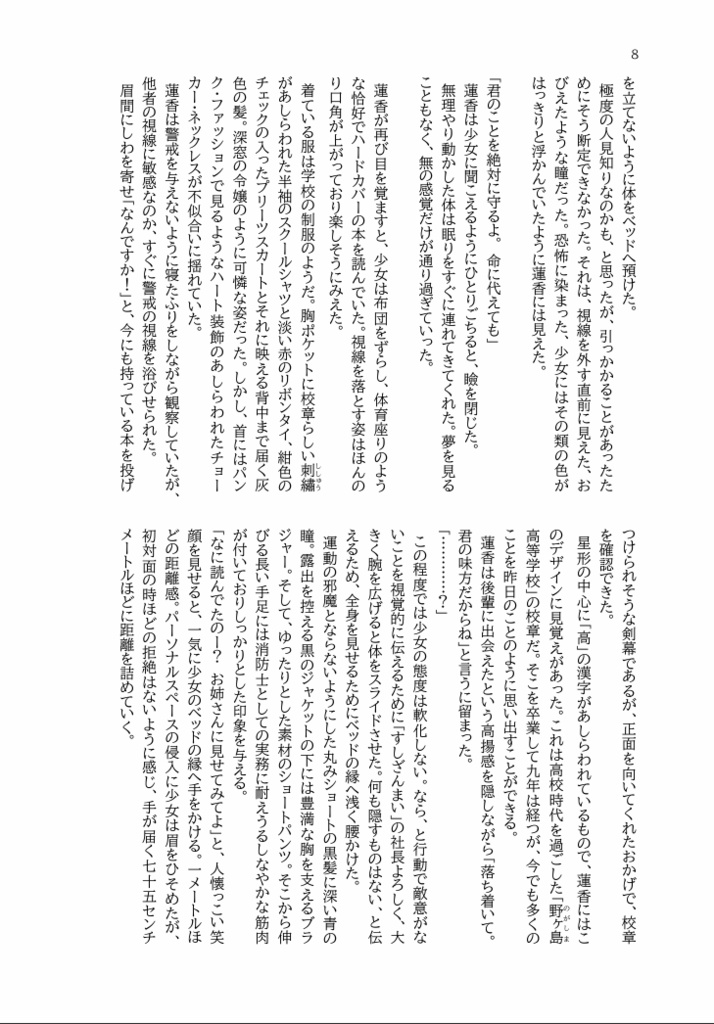 8
を立てないように体をベッドへ預けた。
極度の人見知りなのかも、と思ったが、引っかかることがあったた
めにそう断定できなかった。それは、視線を外す直前に見えた、お
びえたような瞳だった。恐怖に染まった、少女にはその類の色が
はっきりと浮かんでいたように蓮香には見えた。
「君のことを絶対に守るよ。命に代えても」
蓮香は少女に聞こえるようにひとりごちると、瞼を閉じた。
無理やり動かした体は眠りをすぐに連れてきてくれた。夢を見る
こともなく、無の感覚だけが通り過ぎていった。
蓮香が再び目を覚ますと、少女は布団をずらし、体育座りのよう
な恰好でハードカバーの本を読んでいた。視線を落とす姿はほんの
り口角が上がっており楽しそうにみえた。
着ている服は学校の制服のようだ。胸ポケットに校章らしい刺繡
ししゅう
があしらわれた半袖のスクールシャツと淡い赤のリボンタイ、紺色の
チェックの入ったプリーツスカートとそれに映える背中まで届く灰
色の髪。深窓の令嬢のように可憐な姿だった。しかし、首にはパン
ク・ファッションで見るようなハート装飾のあしらわれたチョー
カー・ネックレスが不似合いに揺れていた。
蓮香は警戒を与えないように寝たふりをしながら観察していたが、
他者の視線に敏感なのか、すぐに警戒の視線を浴びせられた。
眉間にしわを寄せ「なんですか！」と、今にも持っている本を投げ
つけられそうな剣幕であるが、正面を向いてくれたおかげで、校章
を確認できた。
星形の中心に「高」の漢字があしらわれているもので、蓮香にはこ
のデザインに見覚えがあった。これは高校時代を過ごした「野ヶ島
のがしま
高等学校」の校章だ。そこを卒業して九年は経つが、今でも多くの
ことを昨日のことのように思い出すことができる。
蓮香は後輩に出会えたという高揚感を隠しながら「落ち着いて。
君の味方だからね」と言うに留まった。
「…………？」
この程度では少女の態度は軟化しない。なら、と行動で敵意がな
いことを視覚的に伝えるために「すしざんまい」の社長よろしく、大
きく腕を広げると体をスライドさせた。何も隠すものはない、と伝
えるため、全身を見せるためにベッドの縁へ浅く腰かけた。
運動の邪魔とならないようにした丸みショートの黒髪に深い青の
瞳。露出を控える黒のジャケットの下には豊満な胸を支えるブラ
ジャー。そして、ゆったりとした素材のショートパンツ。そこから伸
びる長い手足には消防士としての実務に耐えうるしなやかな筋肉
が付いておりしっかりとした印象を与える。
「なに読んでたのー？ お姉さんに見せてみてよ」と、人懐っこい笑
顔を見せると、一気に少女のベッドの縁へ手をかける。一メートルほ
どの距離感。パーソナルスペースの侵入に少女は眉をひそめたが、
初対面の時ほどの拒絶はないように感じ、手が届く七十五センチ
メートルほどに距離を詰めていく。